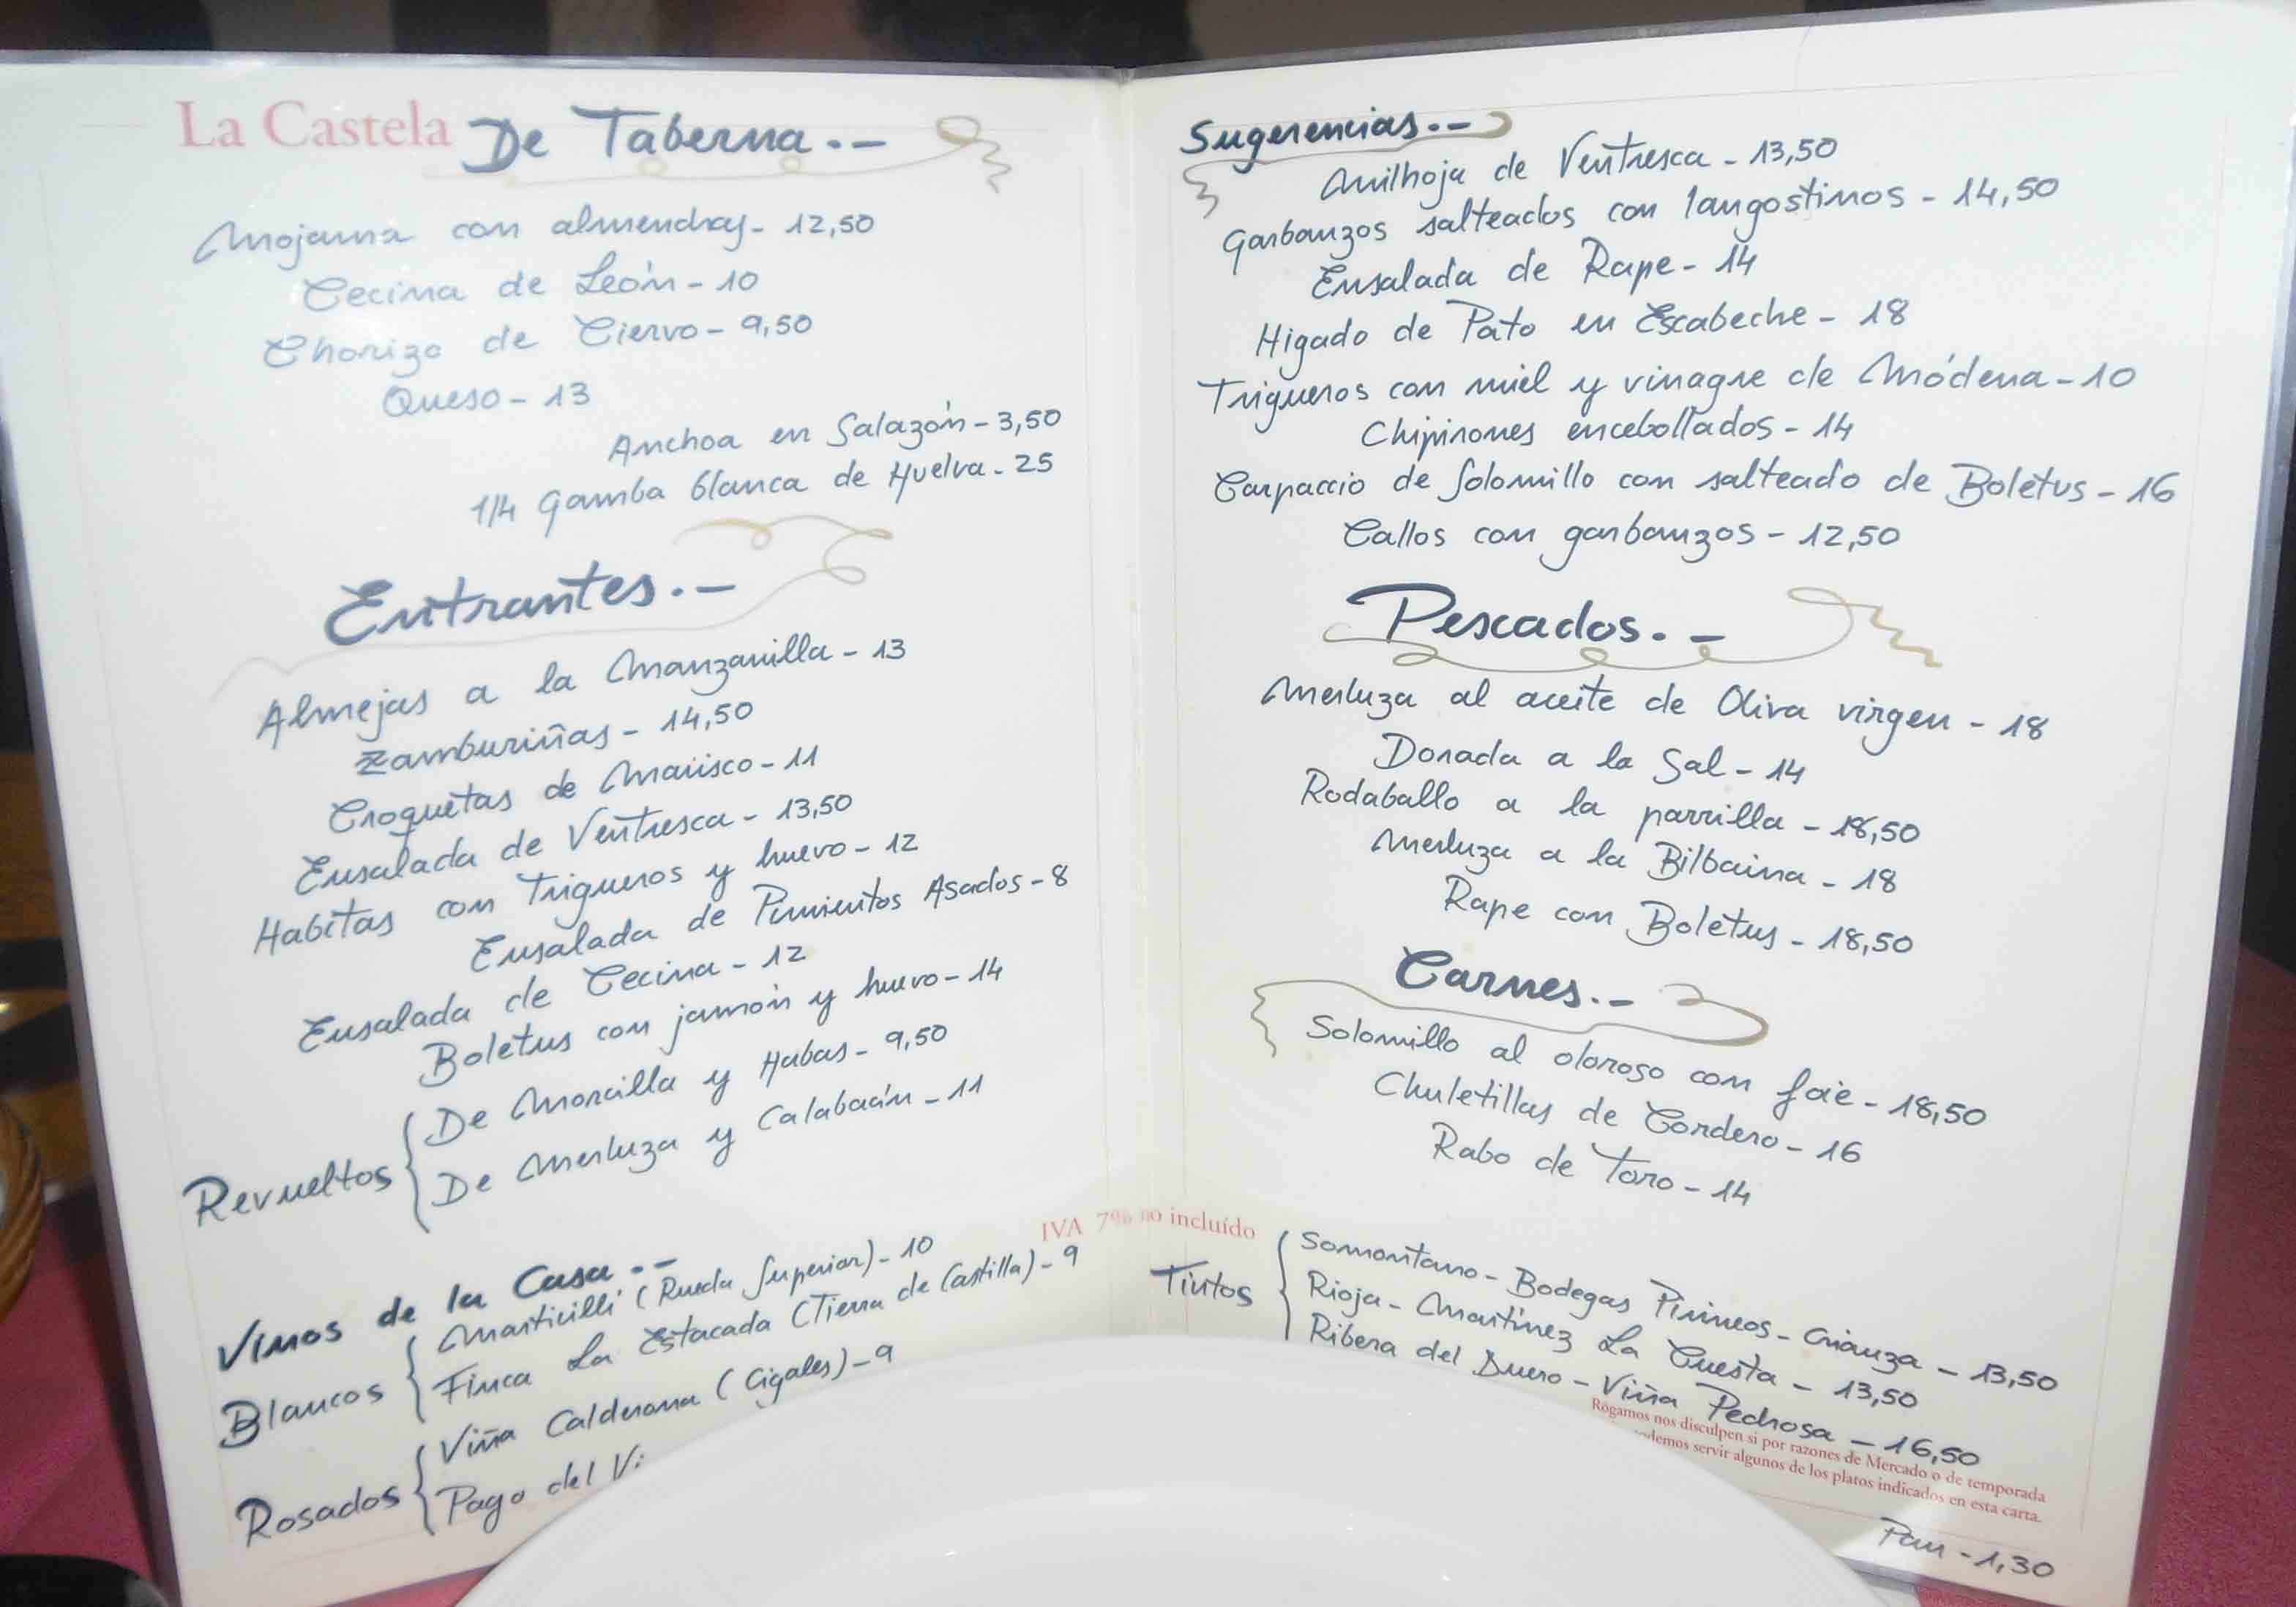 La Castela De Taberna.-
Mojama con almendras - 12,50
Cecina de León - 10
Chorizo de Ciervo - 9,50
Queso - 13
Anchoa en Salazón - 3,50
1/4 Gamba blanca de Huelva - 25
Entrantes.-
Almejas a la Manzanilla - 13
Zamburiñas - 14,50
Croquetas de Marisco - 11
Ensalada de Ventresca - 13,50
Habitas con Trigueros y huevo - 12
Ensalada de Pimientos Asados - 8
Ensalada de Cecina - 12
Boletus con jamón y huevo - 14
Revueltos
De Morcilla y Habas - 9,50
De Merluza y Calabacín - 11
Vinos de la Casa.-
Blancos
Martivillí (Rueda Superior) - 10
Finca La Estacada (Tierra de Castilla) - 9
Rosados
Viña Calderona (Cigales) - 9
Pago del Vi
Sugerencias.-
Milhoja de Ventresca - 13,50
Garbanzos salteados con langostinos - 14,50
Ensalada de Rape - 14
Higado de Pato en Escabeche - 18
Trigueros con miel y vinagre de Módena - 10
Chipirones encebollados - 14
Carpaccio de Solomillo con salteado de Boletus - 16
Callos con garbanzos - 12,50
Pescados.-
Merluza al aceite de Oliva virgen - 18
Dorada a la Sal - 14
Rodaballo a la parrilla - 18,50
Merluza a la Bilbaina - 18
Rape con Boletus - 18,50
Carnes.-
Solomillo al oloroso con foie - 18,50
Chuletillas de Cordero - 16
Rabo de Toro - 14
IVA 7% no incluído
Tintos
Somontano - Bodegas Pirineos - Crianza - 13,50
Rioja - Martínez La Cuesta - 13,50
Ribera del Duero - Viña Pedrosa - 16,50
Rogamos nos disculpen si por razones de Mercado o de temporada
servir algunos de los platos indicados en esta carta.
Pan - 1,30